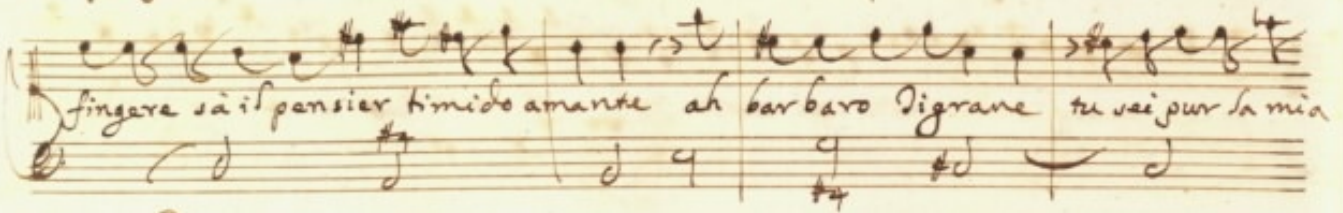 fingere sà il pensier timido amante ah barbaro Tigrane tu sei pur la mia